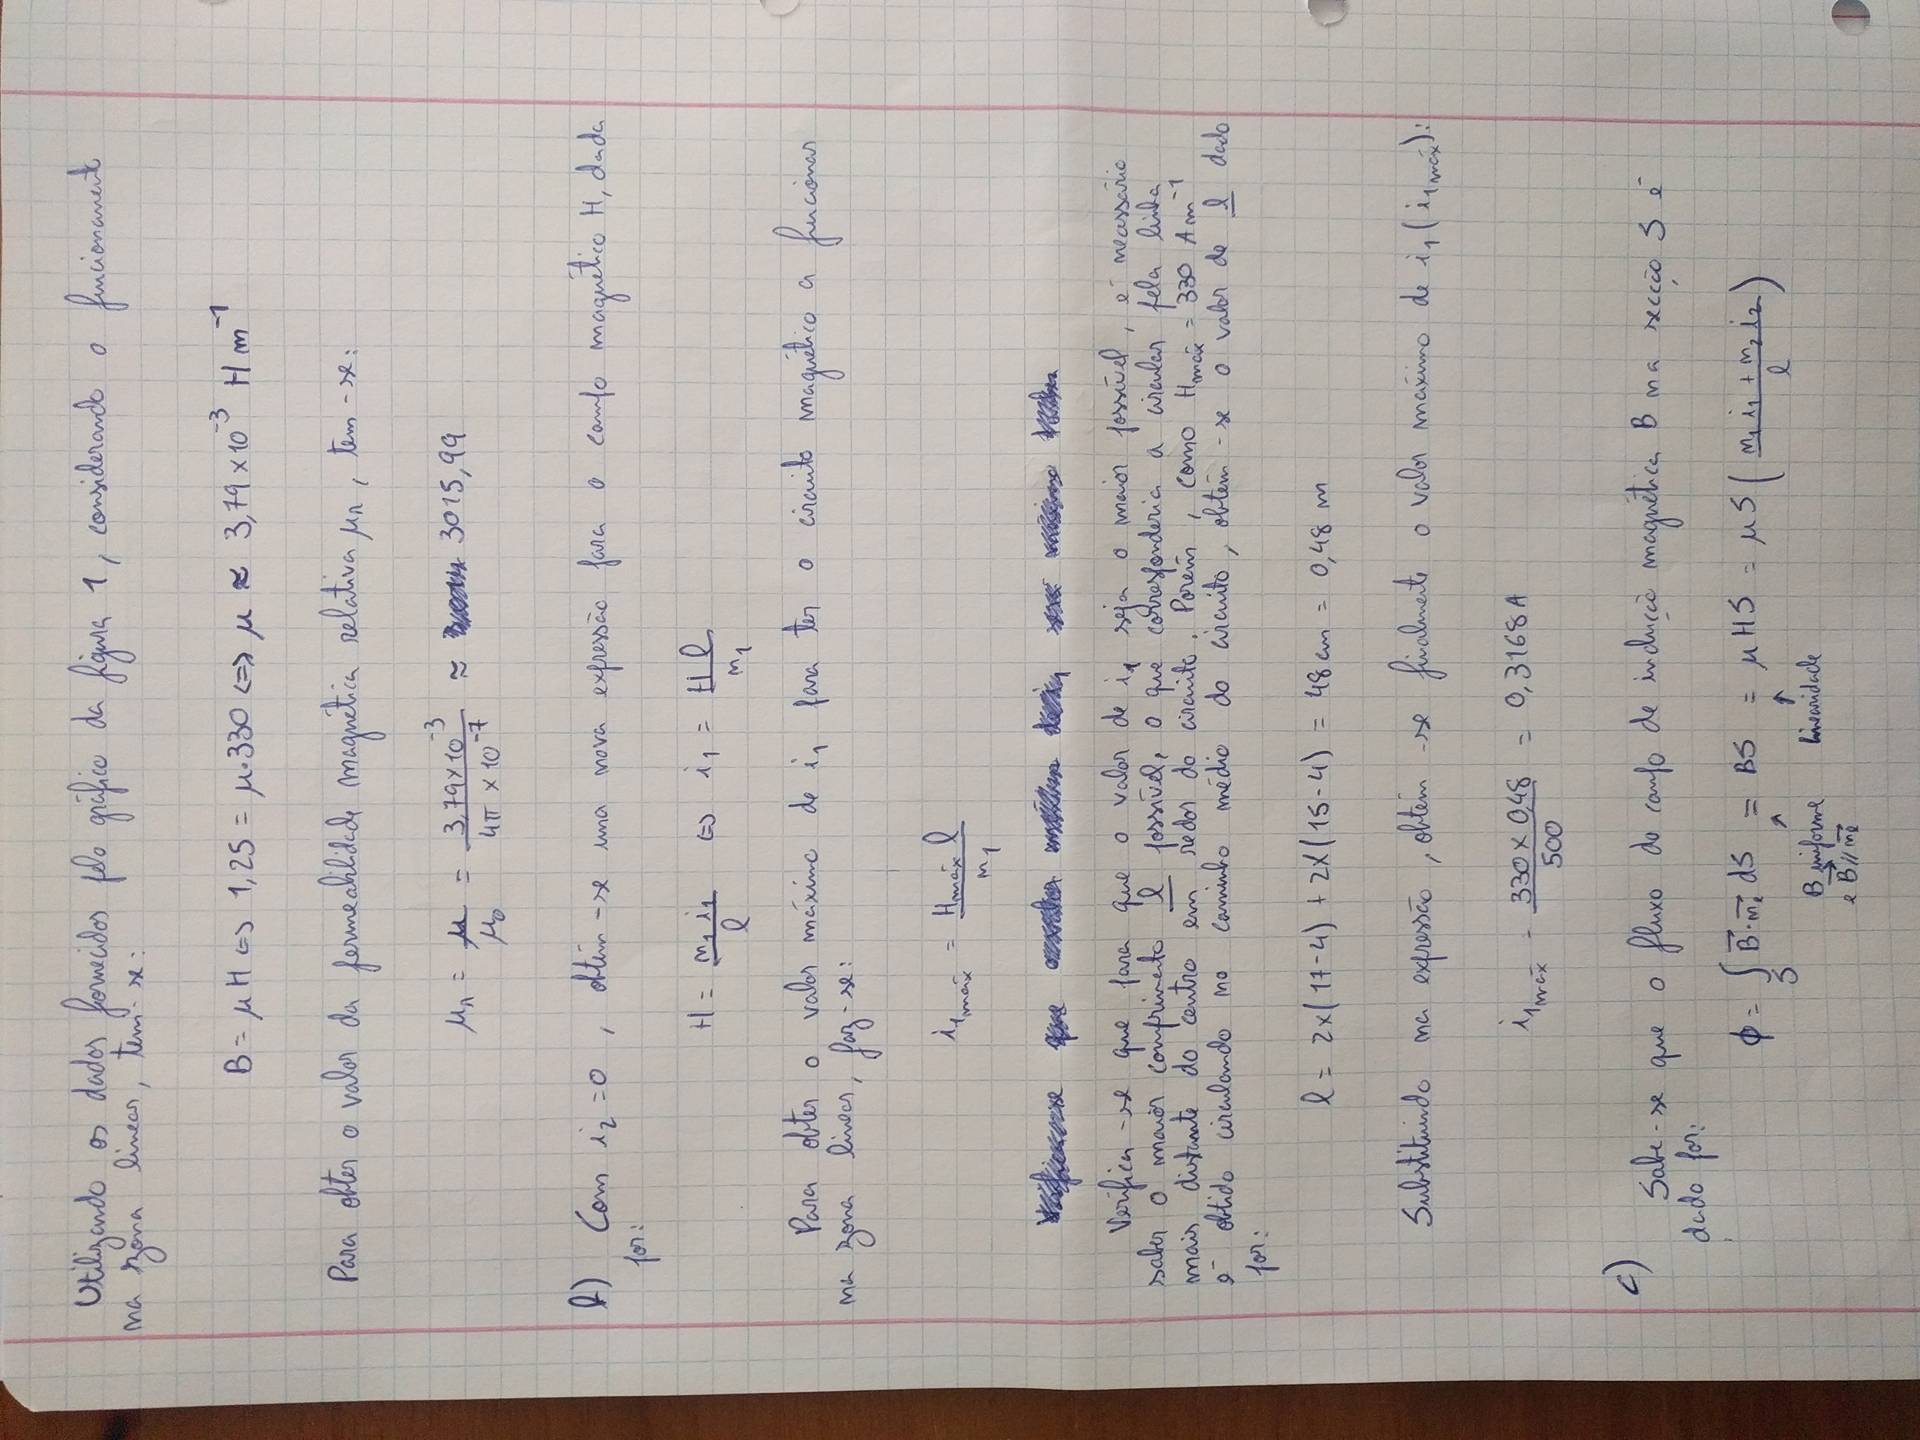 Utilizando os dados fornecidos pelo gráfico da figura 1, considerando o funcionamento
na zona linear, tem-se:
B = μH ⇔ 1,25 = μ·330 ⇔ μ ≈ 3,79×10⁻³ H m⁻¹
Para obter o valor da permeabilidade magnética relativa μr, tem-se:
μr = μ/μ0 = 3,79×10⁻³/4π×10⁻⁷ ≈ 3015,99
b) Com i2=0, obtém-se uma nova expressão para o campo magnético H, dada
por:
H = n1 i1/l ⇔ i1 = Hl/n1
Para obter o valor máximo de i1 para ter o circuito magnético a funcionar
na zona linear, faz-se:
i1máx = Hmáx l/n1
Verifica-se que para que o valor de i1 seja o maior possível, é necessário
saber o maior comprimento l possível, o que corresponderia a circular pela linha
mais distante do centro em redor do circuito. Porém, como Hmáx = 330 A m⁻¹
é obtido circulando no caminho médio do circuito, obtém-se o valor de l dado
por:
l = 2×(17-4) + 2×(15-4) = 48 cm = 0,48 m
Substituindo na expressão, obtém-se finalmente o valor máximo de i1 (i1máx):
i1máx = 330×0,48/500 = 0,3168 A
c) Sabe-se que o fluxo do campo de indução magnética B na secção S é
dado por:
ϕ = ∫S B⃗·n⃗e dS = BS = μHS = μS (n1 i1 + n2 i2/l)
B⃗ uniforme
e B⃗//n⃗e
linearidade